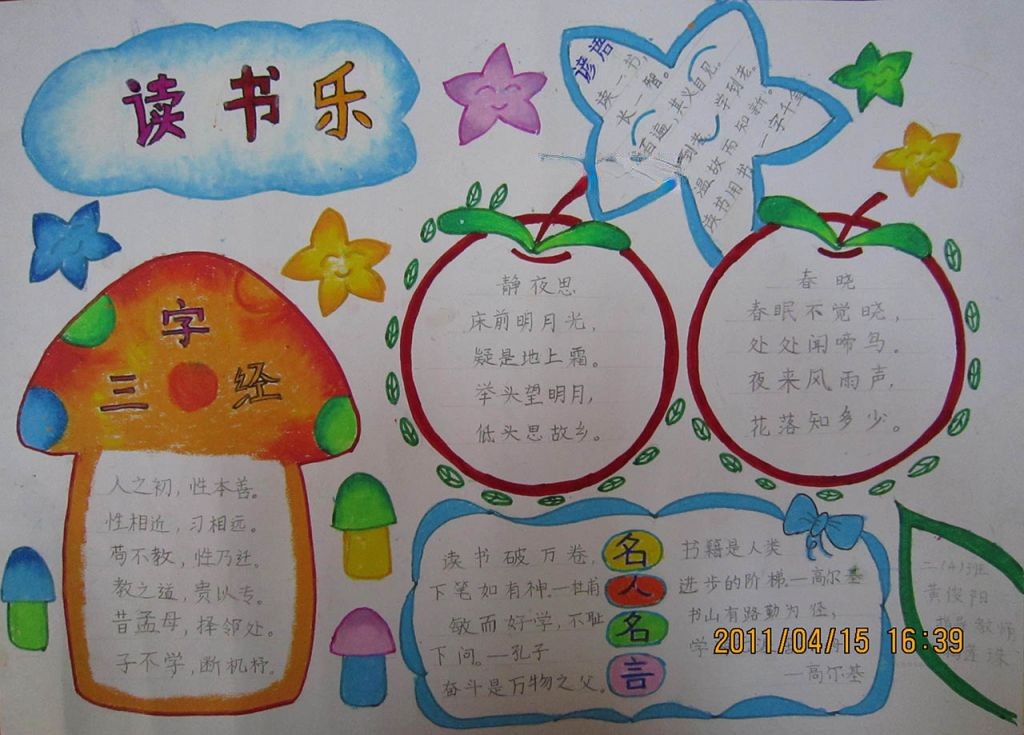 读书乐
谚语
读一书,
长一智。
百遍,其义自见。
学到老。
温故而知新。
读书用书 一字千金
字
三 经
人之初,性本善。
性相近,习相远。
苟不教,性乃迁。
教之道,贵以专。
昔孟母,择邻处。
子不学,断机杼。
静夜思
床前明月光,
疑是地上霜。
举头望明月,
低头思故乡。
春晓
春眠不觉晓,
处处闻啼鸟。
夜来风雨声,
花落知多少。
名人名言
读书破万卷,
下笔如有神.—杜甫
敏而好学,不耻
下问。—孔子
奋斗是万物之父。
书籍是人类
进步的阶梯.—高尔基
书山有路勤为径,
学
—高尔基
二(4)班
黄俊阳
指导教师
珠
2011/04/15 16:39